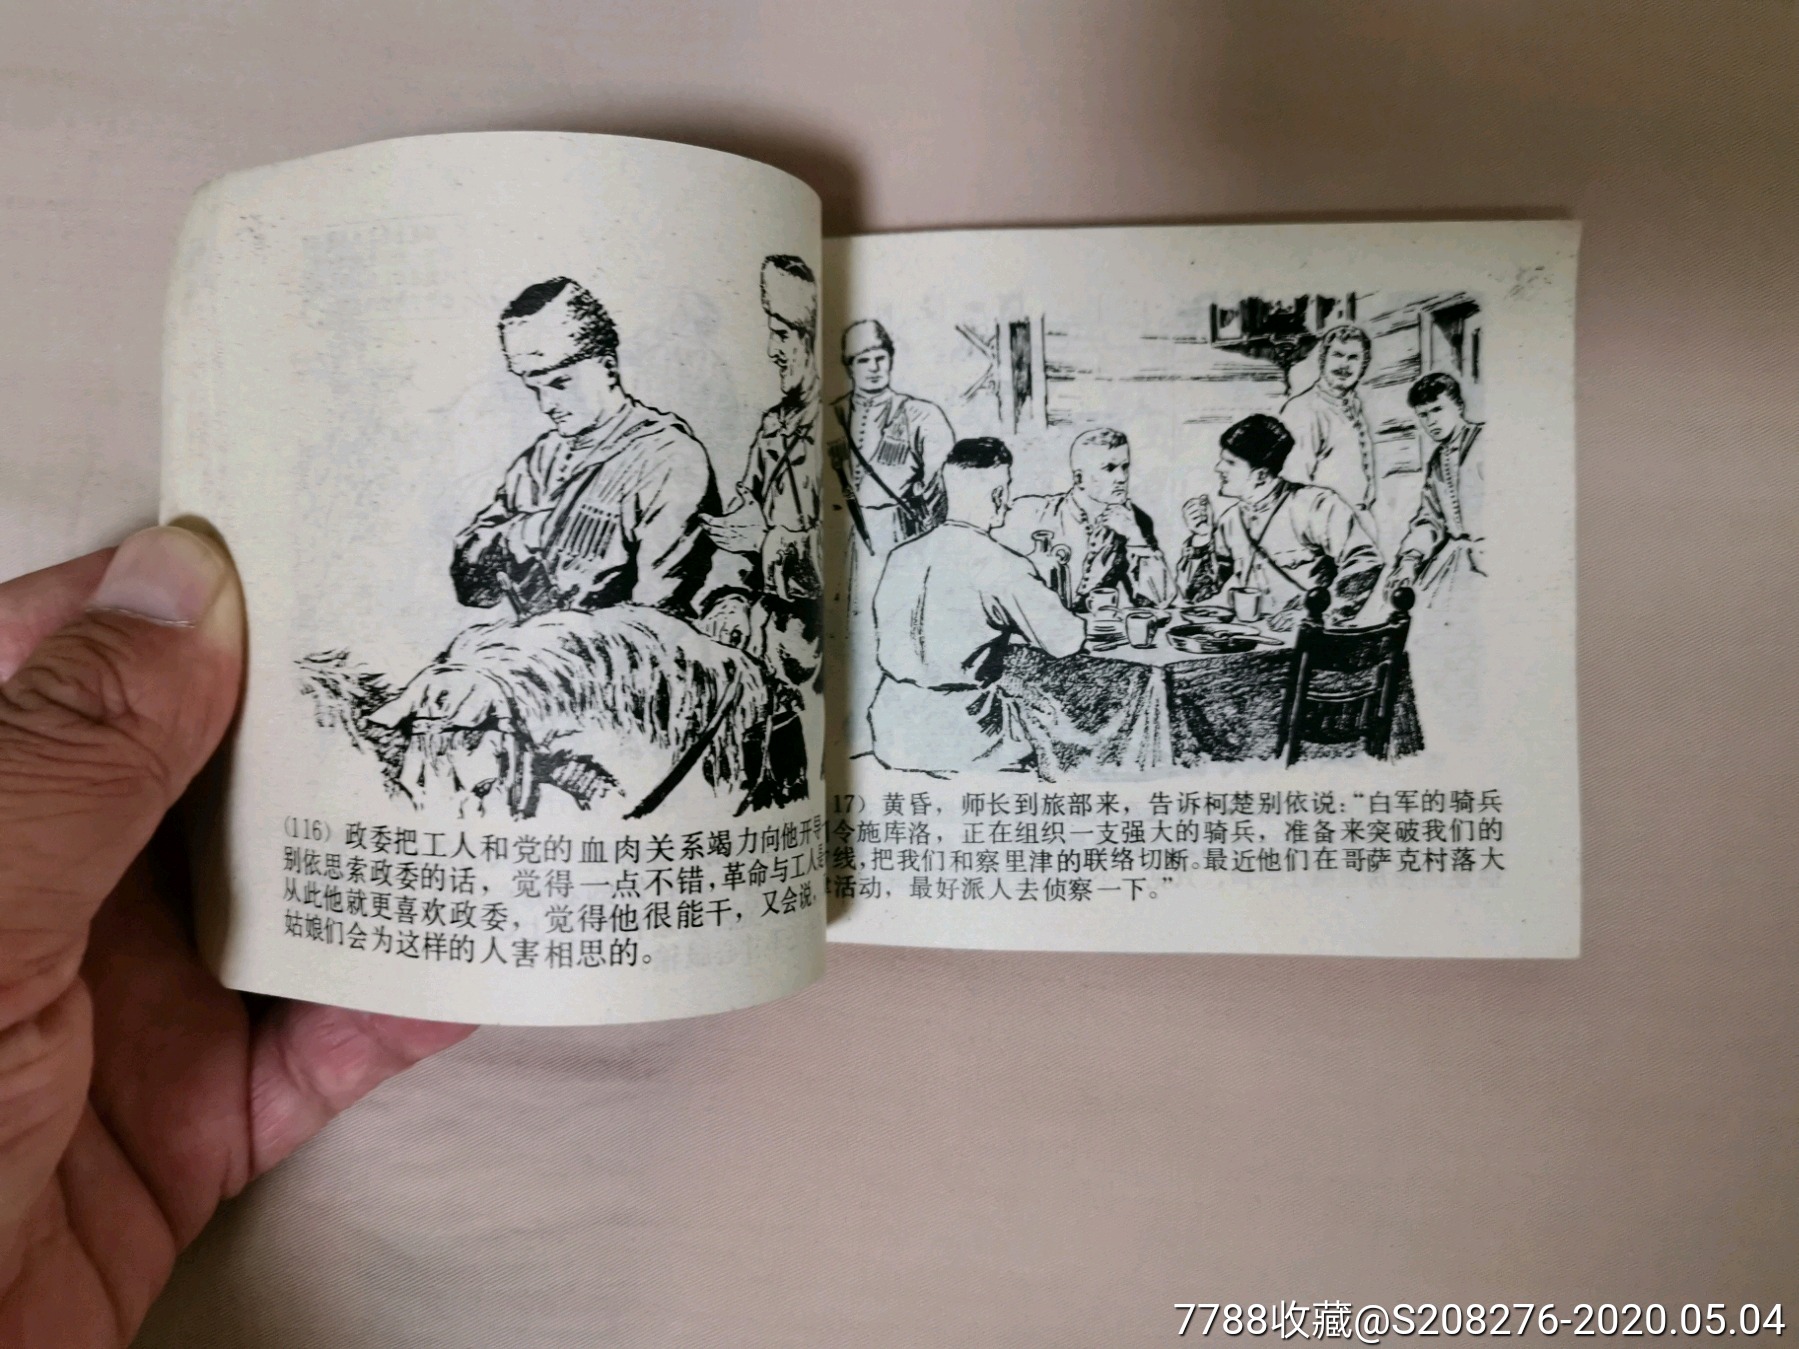 (116) 政委把工人和党的血肉关系竭力向他开导
别依思索政委的话，觉得一点不错，革命与工人是
从此他就更喜欢政委，觉得他很能干，又会说，
姑娘们会为这样的人害相思的。
17) 黄昏，师长到旅部来，告诉柯楚别依说：“白军的骑兵
令施库洛，正在组织一支强大的骑兵，准备来突破我们的
线，把我们和察里津的联络切断。最近他们在哥萨克村落大
活动，最好派人去侦察一下。”
7788收藏@S208276-2020.05.04